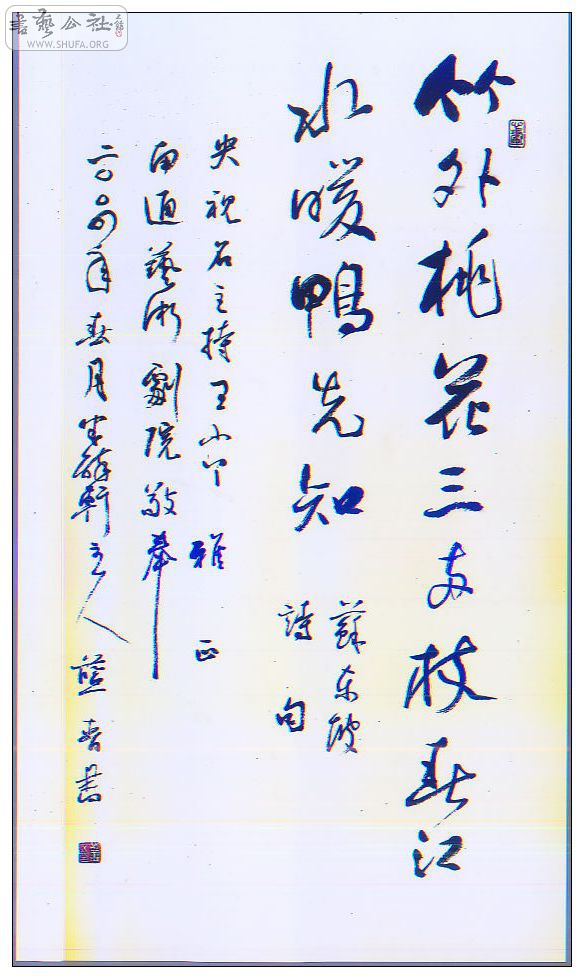 書藝公社
WWW.SHUFA.ORG
竹外桃花三两枝春江
水暖鴨先知
蘇东坡
詩句
央視名主持王小丫 雅正
南通藝術劇院敬奉
二〇〇四年春月半 軒主人 書